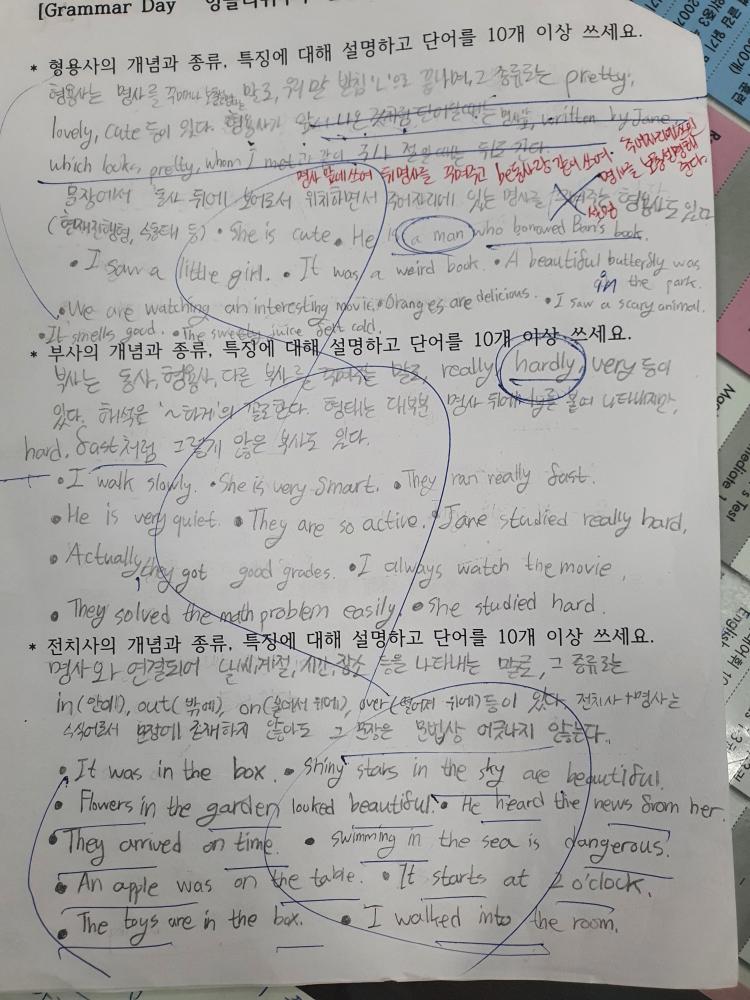 [Grammar Day
* 형용사의 개념과 종류, 특징에 대해 설명하고 단어를 10개 이상 쓰세요.
형용사는 명사를 꾸며주거나 말로, 우리말 받침 'ㄴ'으로 끝나며, 그 종류로는 pretty,
lovely, cute 등이 있다. 형용사가 앞서 나온 것처럼 단어일 때는 명사앞, written by Jane,
which looks pretty, whom I met과 같이 주어 절일 때는 뒤로 간다.
명사 앞에 쓰여 뒤 명사를 꾸며주고 be동사랑 같이 쓰여 주어자리에 쓰인
명사를 보충설명해 준다.
문장에서 동사 뒤에 보어로서 위치하면서 주어자리에 있는 명사를 형용사도 있다
설명
(현재진행형, 수동태 등) • She is cute. • He is a man who borrowed Ban's book.
• I saw a little girl. • It was a weird book. • A beautiful butterfly was
in the park.
• We are watching an interesting movie. • Oranges are delicious. • I saw a scary animal.
• It smells good. • The sweety juice felt cold.
* 부사의 개념과 종류, 특징에 대해 설명하고 단어를 10개 이상 쓰세요.
부사는 동사, 형용사, 다른 부사를 꾸며주는 말로, really, hardly, very 등이
있다. 해석은 '~하게'의 꼴로 한다. 형태는 대부분 명사 뒤에 ly를 붙여 나타내지만,
hard, fast처럼 그렇게 않은 부사도 있다.
• I walk slowly. • She is very smart. • They ran really fast.
• He is very quiet. • They are so active. • Jane studied really hard.
• Actually, they got good grades. • I always watch the movie.
• They solved the math problem easily. • She studied hard.
* 전치사의 개념과 종류, 특징에 대해 설명하고 단어를 10개 이상 쓰세요.
명사와 연결되어 날씨, 계절, 시간, 장소 등을 나타내는 말로, 그 종류로는
in(안에), out(밖에), on(붙어서 위에), over(떨어져 위에) 등이 있다. 전치사+명사는
수식어로서 문장에 존재하지 않아도 그 문장은 문법상 어긋나지 않는다.
• It was in the box. • Shiny stars in the sky are beautiful.
• Flowers in the garden looked beautiful. • He heard the news from her.
• They arrived on time. • swimming in the sea is dangerous.
• An apple was on the table. • It starts at 2 o'clock.
• The toys are in the box. • I walked into the room.